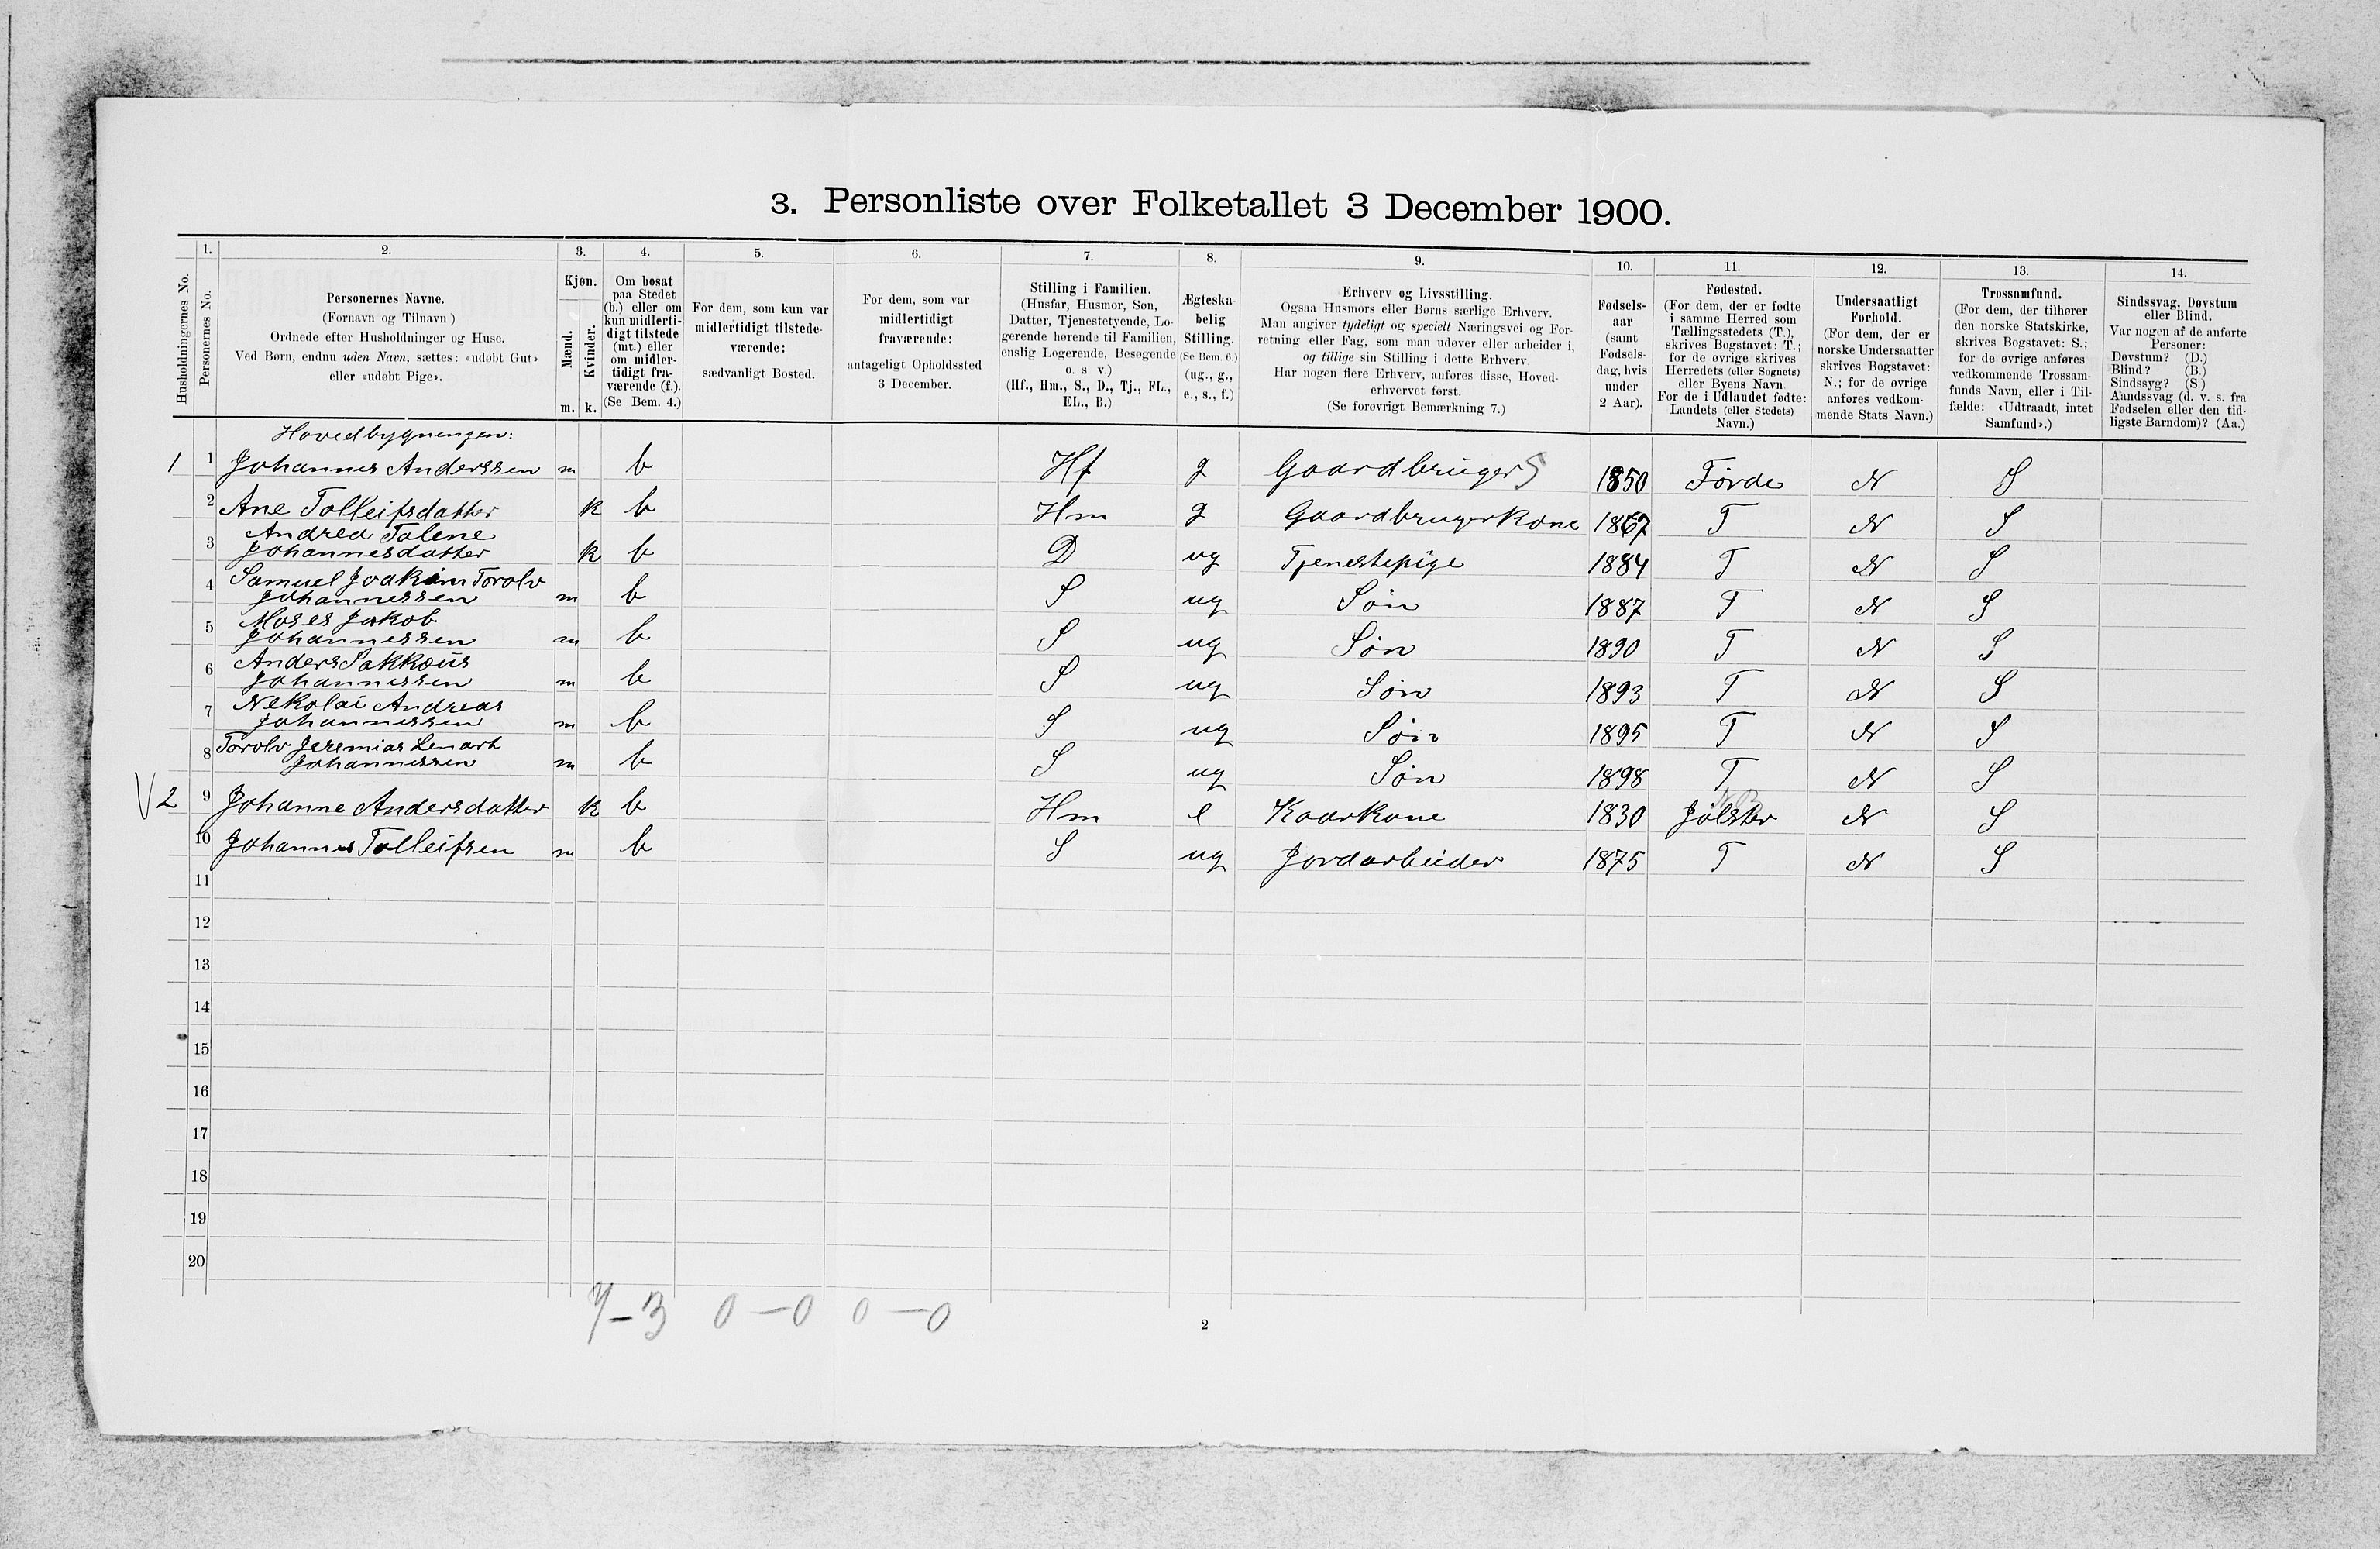 3. Personliste over Folketallet 3 December 1900.
1. 2. 3. 4. 5. 6. 7. 8. 9. 10. 11. 12. 13. 14.
Husholdningernes No.
Personernes No.
Personernes Navne.
(Fornavn og Tilnavn)
Ordnede efter Husholdninger og Huse.
Ved Børn, endnu uden Navn, sættes: «udøbt Gut»
eller «udøbt Pige».
Kjøn.
Mænd.
Kvinder.
m. k.
Om bosat
paa Stedet
(b.) eller om
kun midlerti-
digt tilstede
(mt.) eller
om midler-
tidigt fra-
værende (f.).
(Se Bem. 4.)
For dem, som kun var
midlertidigt tilstede-
værende:
sædvanligt Bosted.
For dem, som var
midlertidigt
fraværende:
antageligt Opholdssted
3 December.
Stilling i Familien.
(Husfar, Husmor, Søn,
Datter, Tjenestetyende, Lo-
gerende hørende til Familien,
enslig Logerende, Besøgende
o. s v.)
(Hf., Hm., S., D., Tj., FL.,
EL., B.)
Ægteska-
belig
Stilling.
(Se Bem. 6.)
(ug., g.,
e., s., f.)
Erhverv og Livsstilling.
Ogsaa Husmors eller Børns særlige Erhverv.
Man angiver tydeligt og specielt Næringsvei og For-
retning eller Fag, som man udøver eller arbeider i,
og tillige sin Stilling i dette Erhverv.
Har nogen flere Erhverv, anføres disse, Hoved-
erhvervet først.
(Se forøvrigt Bemærkning 7.)
Fødsels-
aar
(samt
Fødsels-
dag, hvis
under
2 Aar).
Fødested.
(For dem, der er fødte
i samme Herred som
Tællingsstedets (T.),
skrives Bogstavet: T.;
for de øvrige skrives
Herredets (eller Sognets)
eller Byens Navn.
For de i Udlandet fødte:
Landets (eller Stedets)
Navn.)
Undersaatligt
Forhold.
(For dem, der er
norske Undersaatter
skrives Bogstavet:
N.; for de øvrige
anføres vedkom-
mende Stats Navn.)
Trossamfund.
(For dem, der tilhører
den norske Statskirke,
skrives Bogstavet: S.;
for de øvrige anføres
vedkommende Trossam-
funds Navn, eller i Til-
fælde: «Udtraadt, intet
Samfund».)
Sindssvag, Døvstum
eller Blind.
Var nogen af de anførte
Personer:
Døvstum? (D.)
Blind? (B.)
Sindssyg? (S.)
Aandssvag (d. v. s. fra
Fødselen eller den tid-
ligste Barndom)? (Aa.)
Hovedbygningen:
1 1 Johannes Anderssen m b Hf g Gaardbruger S 1850 Førde N S
2 Ane Tolleifsdatter k b Hm g Gaardbrugerkone 1867 T N S
Andrea Talene
3 Johannesdatter k b D ug Tjenestepige 1884 T N S
Samuel Joakim Torolv
4 Johannessen m b S ug Søn 1887 T N S
Moses Jakob
5 Johannessen m b S ug Søn 1890 T N S
Anders Sakkæus
6 Johannessen m b S ug Søn 1893 T N S
Nekolai Andreas
7 Johannessen m b S ug Søn 1895 T N S
Torolv Jeremias Lenart
8 Johannessen m b S ug Søn 1898 T N S
V 2 9 Johanne Andersdatter k b Hm e Kaarkone 1830 Jølster N S
10 Johannes Tolleifsen m b S ug Jordarbeider 1875 T N S
11
12
13
14
15
16
17
18
19
20
7-3 0-0 0-0
2